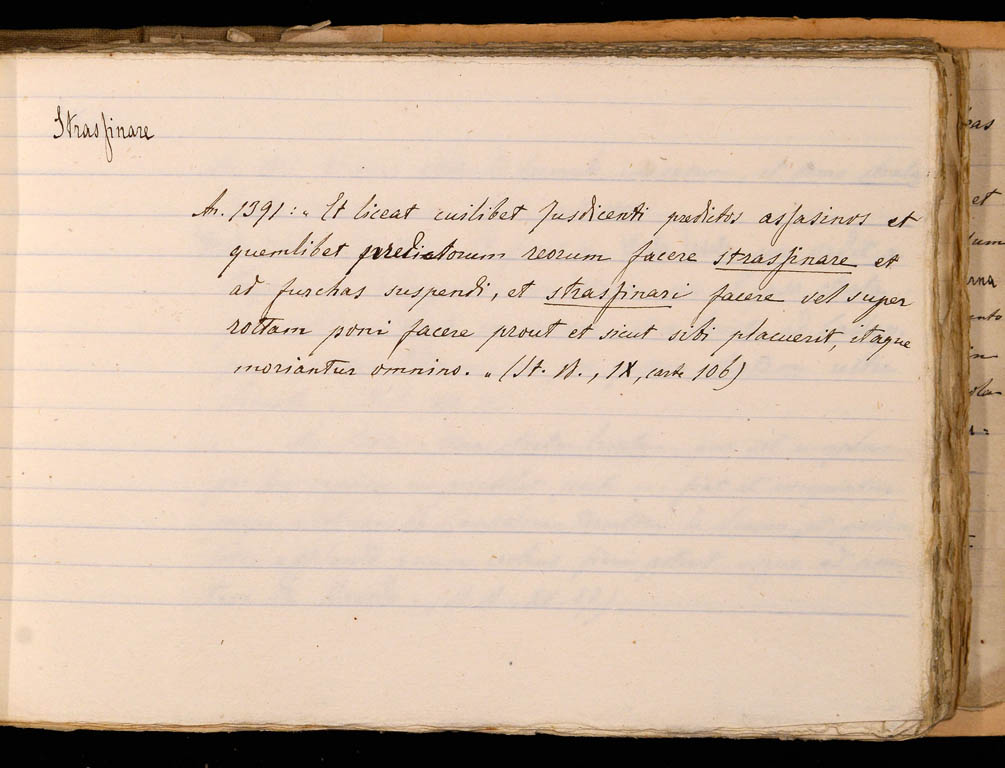 Strassinare
An. 1391: „ Et liceat cuilibet Jusdicenti predictos assasinos et
quemlibet predictorum reorum facere strassinare et
ad furchas suspendi, et strassinari facere vel super
rottam poni facere prout et sicut sibi placuerit, itaque
moriantur omnino. „ (St. B., IX, carte 106)
eas
et
dum
erna
ento
in